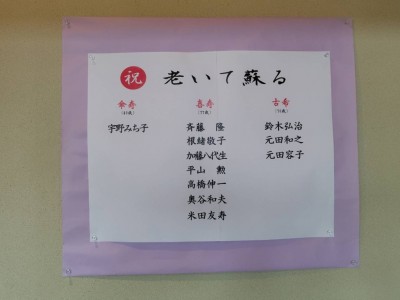 祝 老いて蘇る
傘寿
宇野みち子
喜寿
(77歳)
斉藤 隆
根緒敬子
加藤八代生
平山 勲
高橋伸一
奥谷和夫
米田友寿
古希
鈴木弘治
元田和之
元田容子